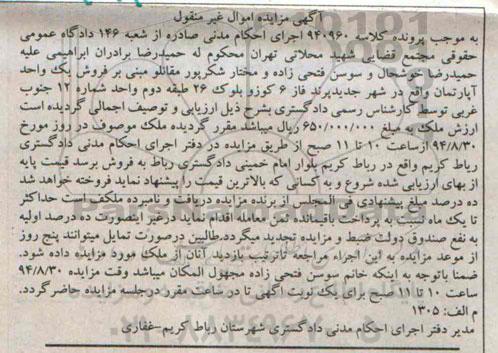 آگهی مزایده اموال غیر منقول
به موجب پرونده کلاسه ۹۴۰۹۶۰ اجرای احکام مدنی صادره از شعبه ۱۴۶ دادگاه عمومی
حقوقی مجتمع قضایی شهید محلاتی تهران محکوم له حمیدرضا برادران ابراهیمی علیه
حمیدرضا خوشحال و سوسن فتحی زاده و مختار شکرپور مقانلو مبنی بر فروش یک واحد
آپارتمان واقع در شهر جدیدپرند فاز ۶ کوزو بلوک ۲۶ طبقه دوم واحد شماره ۱۲ جنوب
غربی توسط کارشناس رسمی دادگستری بشرح ذیل ارزیابی و توصیف اجمالی گردیده است
ارزش ملک به مبلغ ۶۵۰/۰۰۰/۰۰۰ ریال میباشد مقرر گردیده ملک موصوف در روز مورخ
۹۴/۸/۳۰ ازساعت ۱۰ تا ۱۱ صبح از طریق مزایده در دفتر اجرای احکام مدنی دادگستری
رباط کریم واقع در رباط کریم بلوار امام خمینی دادگستری رباط به فروش برسد قیمت پایه
از بهای ارزیابی شده شروع و به کسانی که بالاترین قیمت را پیشنهاد نماید فروخته خواهد شد
ده درصد مبلغ پیشنهادی فی المجلس از برنده مزایده دریافت و نامبرده مکلف است حداکثر
تا یک ماه نسبت به پرداخت باقیمانده ثمن معامله اقدام نماید درغیر اینصورت ده درصد اولیه
به نفع صندوق دولت ضبط و مزایده تجدید میگردد.طالبین درصورت تمایل میتوانند پنج روز
از موعد مزایده به این اجراء مراجعه تاترتیب بازدید آنان از ملک مورد مزایده داده شود.
ضمنا باتوجه به اینکه خانم سوسن فتحی زاده مجهول المکان میباشد وقت مزایده ۹۴/۸/۳۰
ساعت ۱۰ تا ۱۱ صبح برای یک نوبت اگهی تا در ساعت مقرر درجلسه مزایده حاضر گردد.
م الف: ۱۳۰۵
مدیر دفتر اجرای احکام مدنی دادگستری شهرستان رباط کریم-غفاری